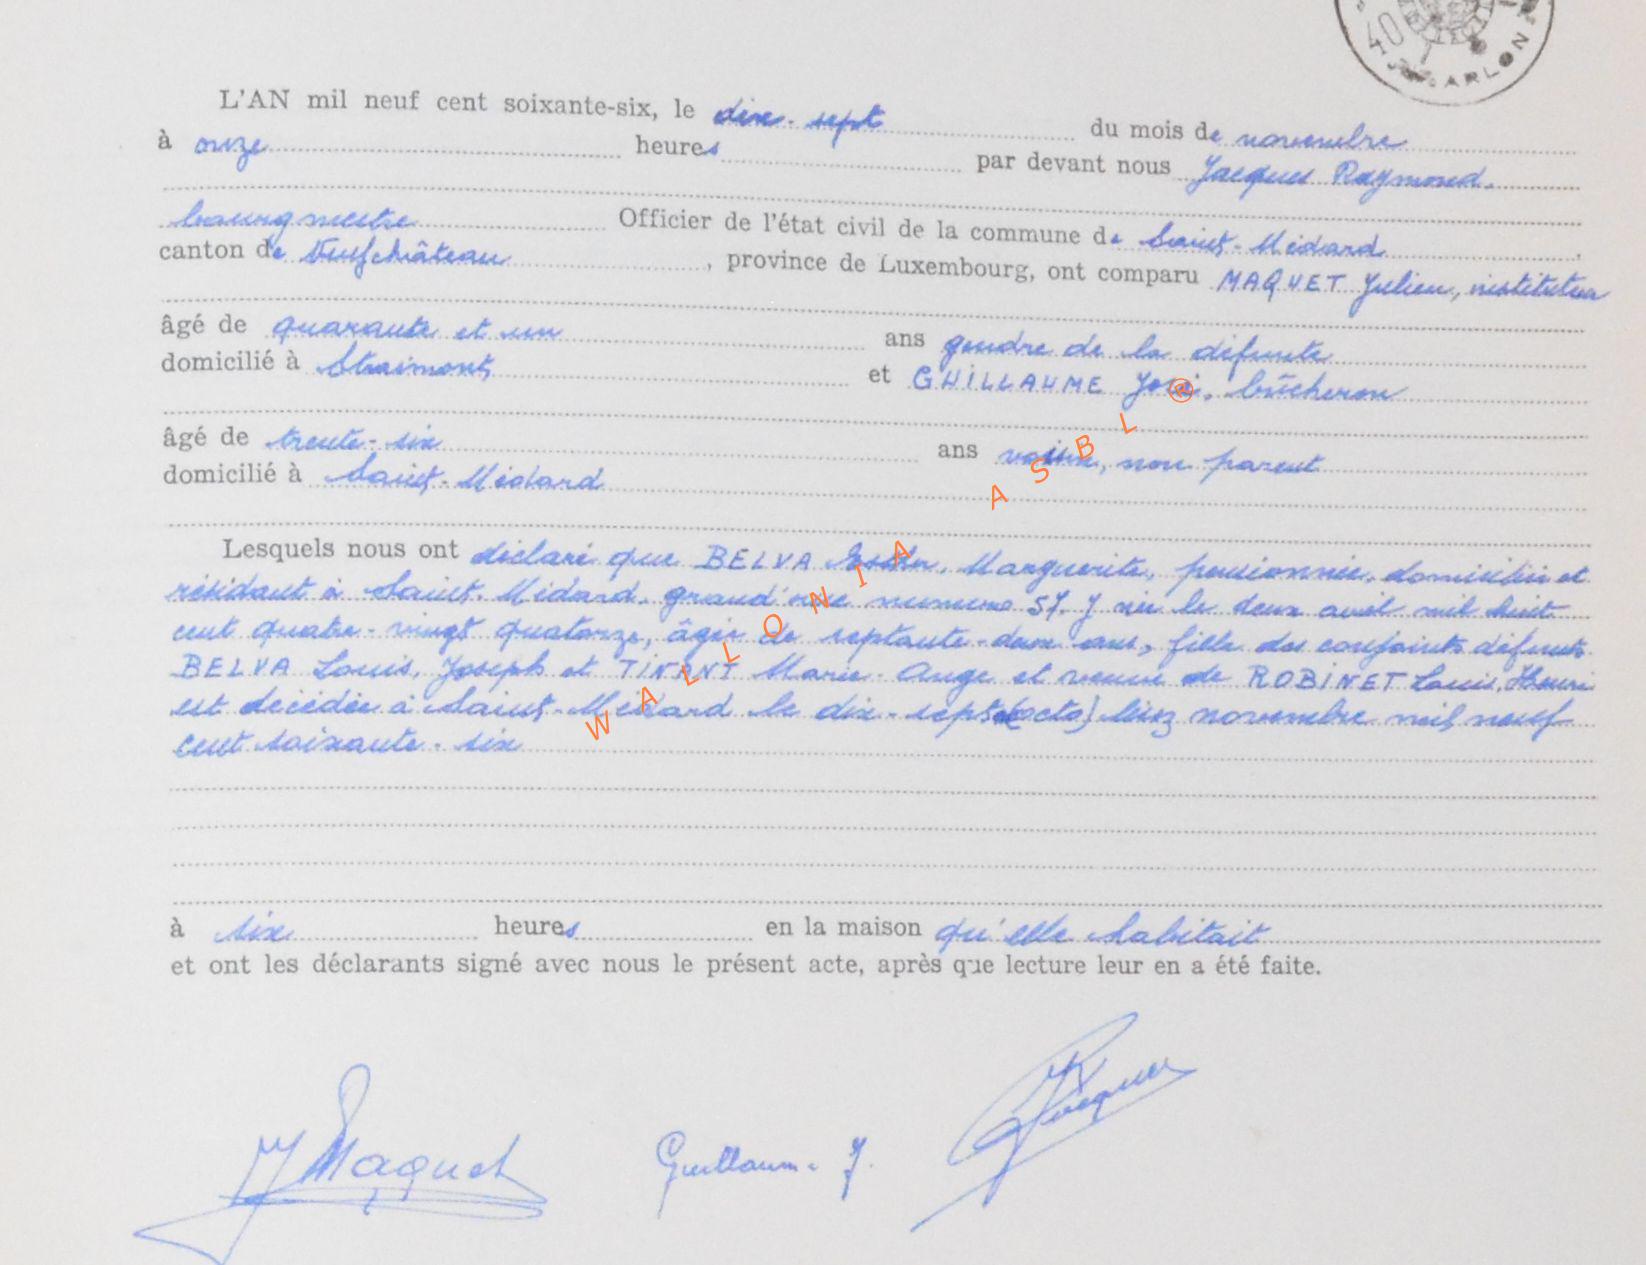 40
ARLON
L'AN mil neuf cent soixante-six, le dix-sept du mois de novembre
à onze heures par devant nous Jacques Raymond,
bourgmestre Officier de l'état civil de la commune de Saint-Médard,
canton de Neufchâteau, province de Luxembourg, ont comparu MAQUET Julien, instituteur
âgé de quarante et un ans gendre de la défunte
domicilié à Straimont et GUILLAUME José, bûcheron
âgé de trente-six ans voisin, non parent
domicilié à Saint-Médard
Lesquels nous ont déclaré que BELVA Marguerite, pensionnée, domiciliée et
résidant à Saint-Médard, grand'rue numéro 57, y née le deux avril mil huit
cent quatre-vingt quatorze, âgée de septante-deux ans, fille des conjoints défunts
BELVA Louis, Joseph et TINANT Marie-Ange et veuve de ROBINET Louis, Henri
est décédée à Saint-Médard le dix-sept novembre mil neuf
cent soixante-six
à six heures en la maison qu'elle habitait
et ont les déclarants signé avec nous le présent acte, après que lecture leur en a été faite.
J Maquet Guillaume J. Jacques
WALLONIA ASBL ®